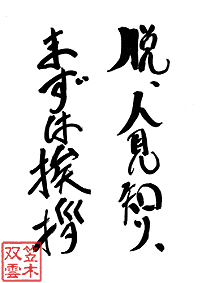 脱、人見知り、
まずは挨拶
笠木
双雲